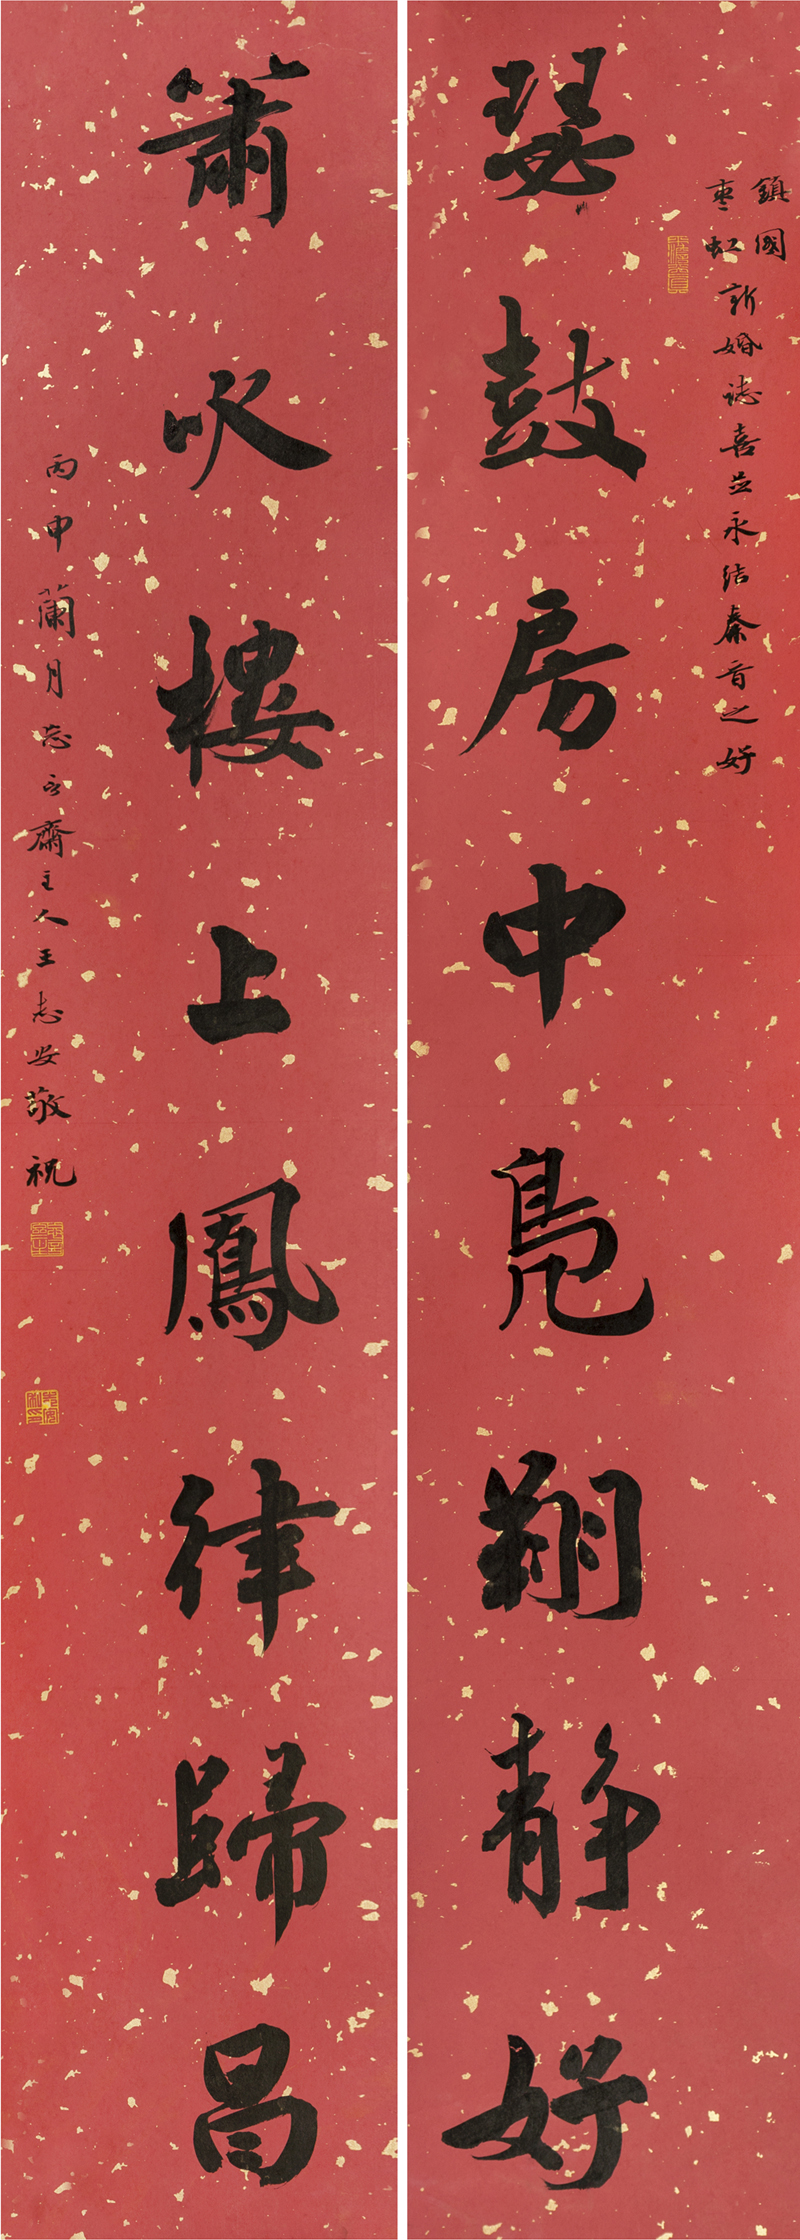 鎮國
枣虹新婚誌喜並永结秦晋之好
瑟鼓房中鳧翔静好
簫吹樓上鳳律歸昌
丙申蘭月忘言齋主人王志安敬祝